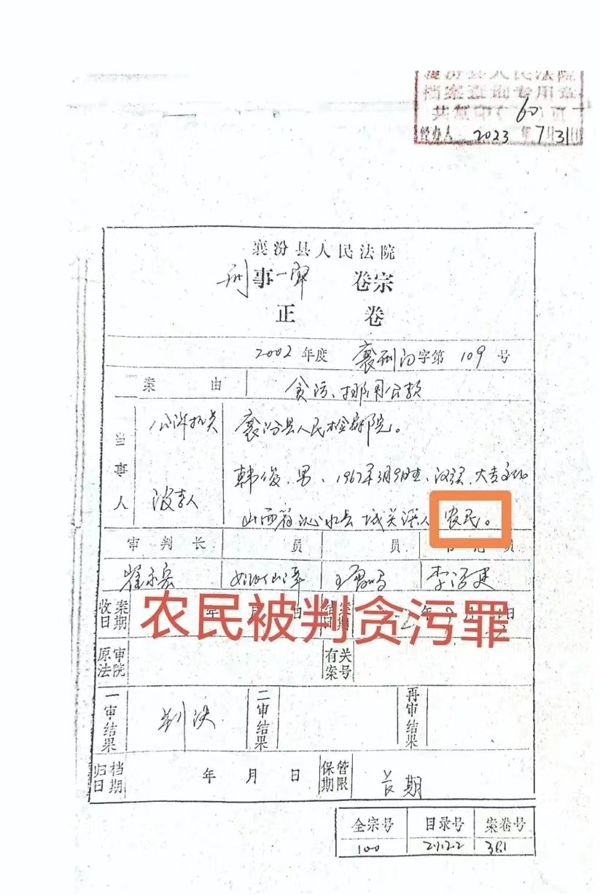 襄汾县人民法院
档案查询专用章
共复印(60)页
经办人 2023年7月31日
襄汾县人民法院
刑事一审 卷宗
正 卷
2002年度 襄刑初字第109号
案由 贪污、挪用公款
当事人 公诉机关 襄汾县人民检察院。
被告人 韩俊,男,1967年3月9日生,汉族,大专文化
山西省沁水县城关镇人 农民。
审判长 员 员 书记员
收案日期 年 月 日 结案日期 年 月 日
农民被判贪污罪
原审法院 有关案号
一审结果 判决 二审结果 再审结果
归档日期 年 月 日 保管期限 长期
全宗号 目录号 案卷号
100 381